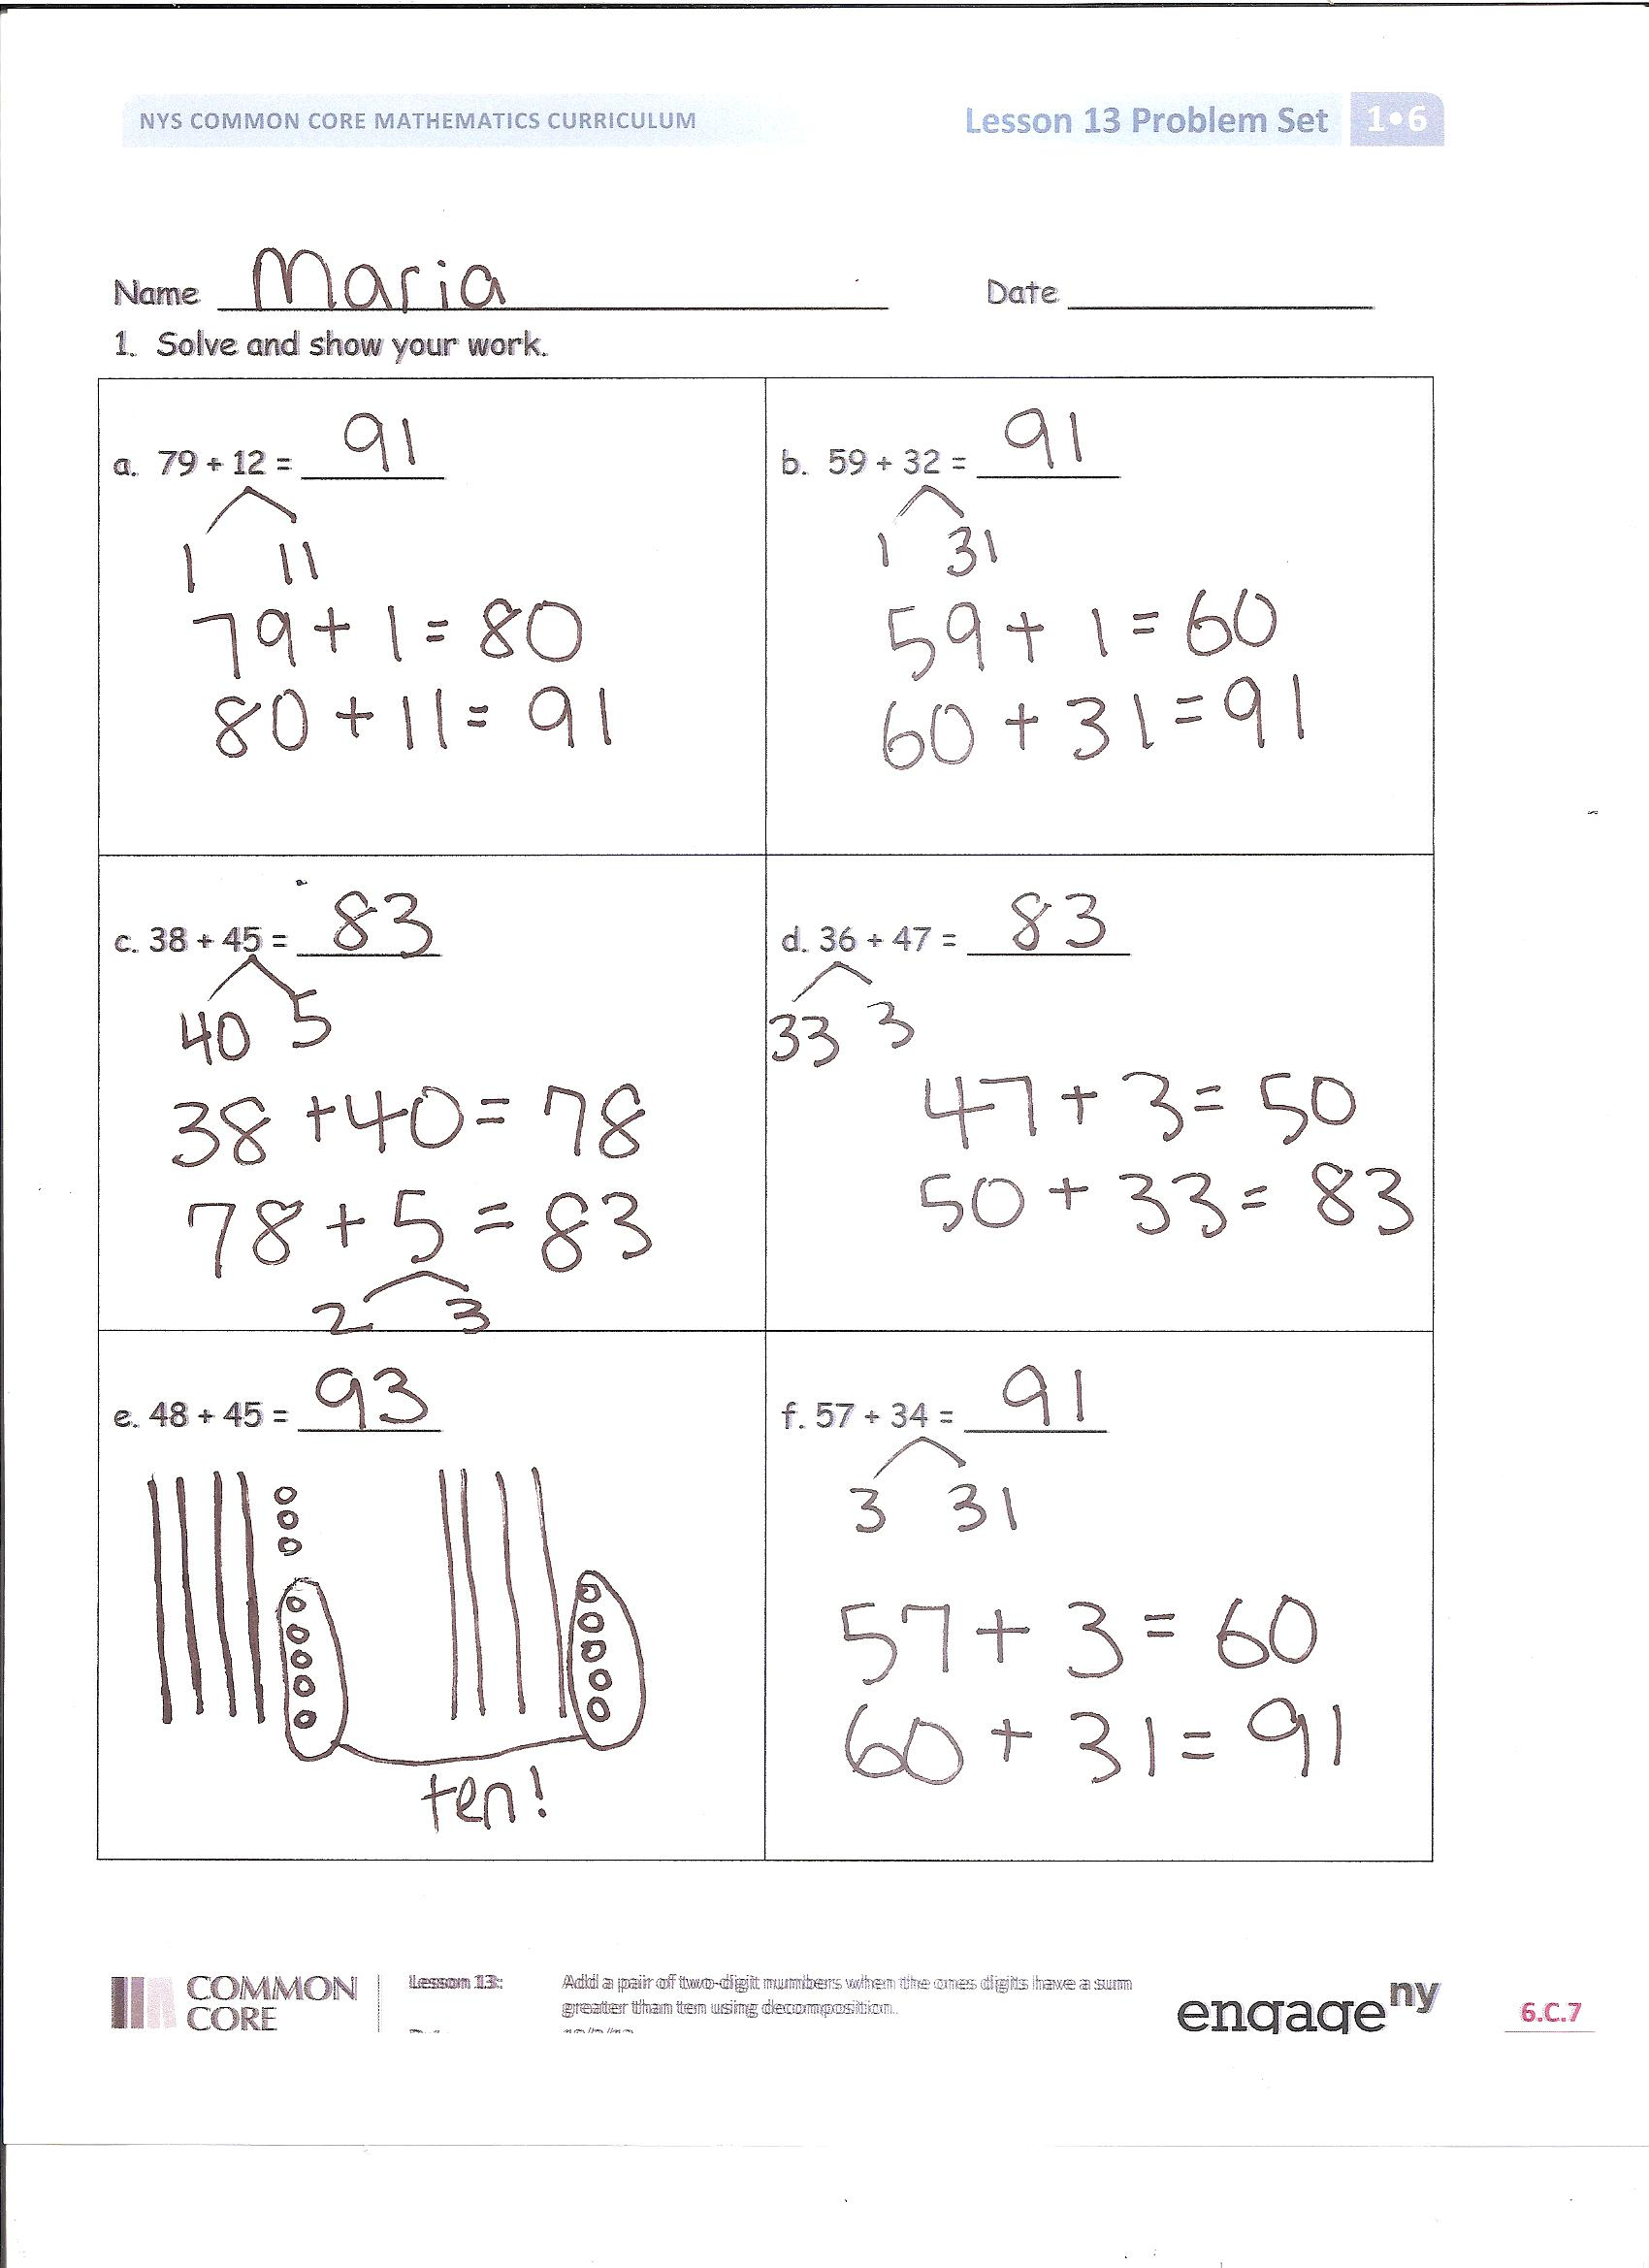 NYS COMMON CORE MATHEMATICS CURRICULUM
Lesson 13 Problem Set 1•6
Name Maria Date
1. Solve and show your work.
a. 79 + 12 = 91
1 11
79 + 1 = 80
80 + 11 = 91
b. 59 + 32 = 91
1 31
59 + 1 = 60
60 + 31 = 91
c. 38 + 45 = 83
40 5
38 + 40 = 78
78 + 5 = 83
2 3
d. 36 + 47 = 83
33 3
47 + 3 = 50
50 + 33 = 83
e. 48 + 45 = 93
ten!
f. 57 + 34 = 91
3 31
57 + 3 = 60
60 + 31 = 91
COMMON
CORE
Lesson 13:
Add a pair of two-digit numbers when the ones digits have a sum
greater than ten using decomposition.
engage ny
6.C.7